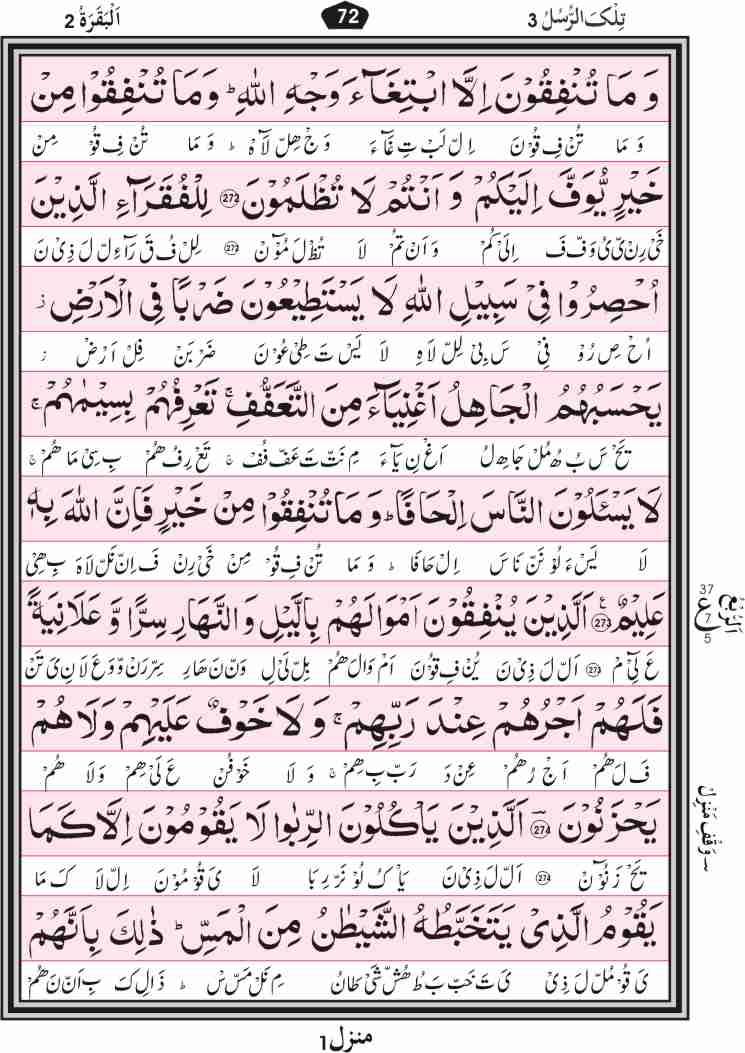 تِلْكَ الرُّسُلُ 3
72
اَلْبَقَرَةُ 2
وَ مَا تُنْفِقُوْنَ اِلَّا ابْتِغَآءَ وَجْهِ اللّٰهِ ؕ وَ مَا تُنْفِقُوْا مِنْ
وَ مَا تُنْ فِ قُوْنَ اِلْ لَبْ تِ غَآءَ وَجْ هِلْ لَاهْ ؕ وَ مَا تُنْ فِ قُوْ مِنْ
خَيْرٍ يُّوَفَّ اِلَيْكُمْ وَ اَنْتُمْ لَا تُظْلَمُوْنَ ۝۲۷۲ لِلْفُقَرَآءِ الَّذِيْنَ
خَىْ رِنْ ىّ ىُ وَفْ فَ اِلَىْ كُمْ وَ اَنْ تُمْ لَا تُظْ لَ مُوْٓنْ ۝۲۷۲ لِلْ فُ قَ رَآءِ لْ لَ ذِىْ نَ
اُحْصِرُوْا فِىْ سَبِيْلِ اللّٰهِ لَا يَسْتَطِيْعُوْنَ ضَرْبًا فِى الْاَرْضِ ز
اُحْ صِ رُوْ فِىْ سَ بِىْ لِلْ لَاهِ لَا يَسْ تَ طِىْ عُوْنَ ضَرْ بَنْ فِلْ اَرْضْ ز
يَحْسَبُهُمُ الْجَاهِلُ اَغْنِيَآءَ مِنَ التَّعَفُّفِ ۚ تَعْرِفُهُمْ بِسِيْمٰهُمْ ۚ
يَحْ سَ بُ هُ مُلْ جَاهِ لُ اَغْ نِ يَآءَ مِ نَتْ تَ عَفْ فُفْ ۚ تَعْ رِ فُ هُمْ بِ سِىْ مَا هُمْ ۚ
لَا يَسْـَٔلُوْنَ النَّاسَ اِلْحَافًا ؕ وَ مَا تُنْفِقُوْا مِنْ خَيْرٍ فَاِنَّ اللّٰهَ بِهٖ
لَا يَسْ ءَ لُوْ نَنْ نَاسَ اِلْ حَافَا ؕ وَ مَا تُنْ فِ قُوْ مِنْ خَىْ رِنْ فَ اِنْ نَلْ لَاهَ بِ هِىْ
عَلِيْمٌ ۝۲۷۳ اَلَّذِيْنَ يُنْفِقُوْنَ اَمْوَالَهُمْ بِالَّيْلِ وَ النَّهَارِ سِرًّا وَّ عَلَانِيَةً
عَ لِىْٓ مْ ۝۲۷۳ اَلْ لَ ذِىْ نَ يُنْ فِ قُوْنَ اَمْ وَالَ هُمْ بِلْ لَىْ لِ وَنْ نَ هَارِ سِرْ رَنْ وَّ وَ عَ لَا نِ ىَ تَنْ
37
اَلرُّبُعُ
ع
7
5
فَلَهُمْ اَجْرُهُمْ عِنْدَ رَبِّهِمْ ۚ وَ لَا خَوْفٌ عَلَيْهِمْ وَ لَا هُمْ
فَ لَ هُمْ اَجْ رُ هُمْ عِنْ دَ رَبْ بِ هِمْ ۚ وَ لَا خَوْ فُنْ عَ لَىْ هِمْ وَ لَا هُمْ
يَحْزَنُوْنَ ۝۲۷۴ اَلَّذِيْنَ يَاْكُلُوْنَ الرِّبٰوا لَا يَقُوْمُوْنَ اِلَّا كَمَا
يَحْ زَ نُوْٓنْ ۝۲۷۴ اَلْ لَ ذِىْ نَ يَاْ كُ لُوْ نَرْ رِ بَا لَا ىَ قُوْ مُوْنَ اِلْ لَا كَ مَا
وَقْفِ مَنْزِلْ
يَقُوْمُ الَّذِىْ يَتَخَبَّطُهُ الشَّيْطٰنُ مِنَ الْمَسِّ ؕ ذٰلِكَ بِاَنَّهُمْ
ىَ قُوْ مُلْ لَ ذِىْ ىَ تَ خَبْ بَ طُ هُشْ شَىْ طَانُ مِ نَلْ مَسّْ ؕ ذَالِ كَ بِ اَنْ نَ هُمْ
منزل1